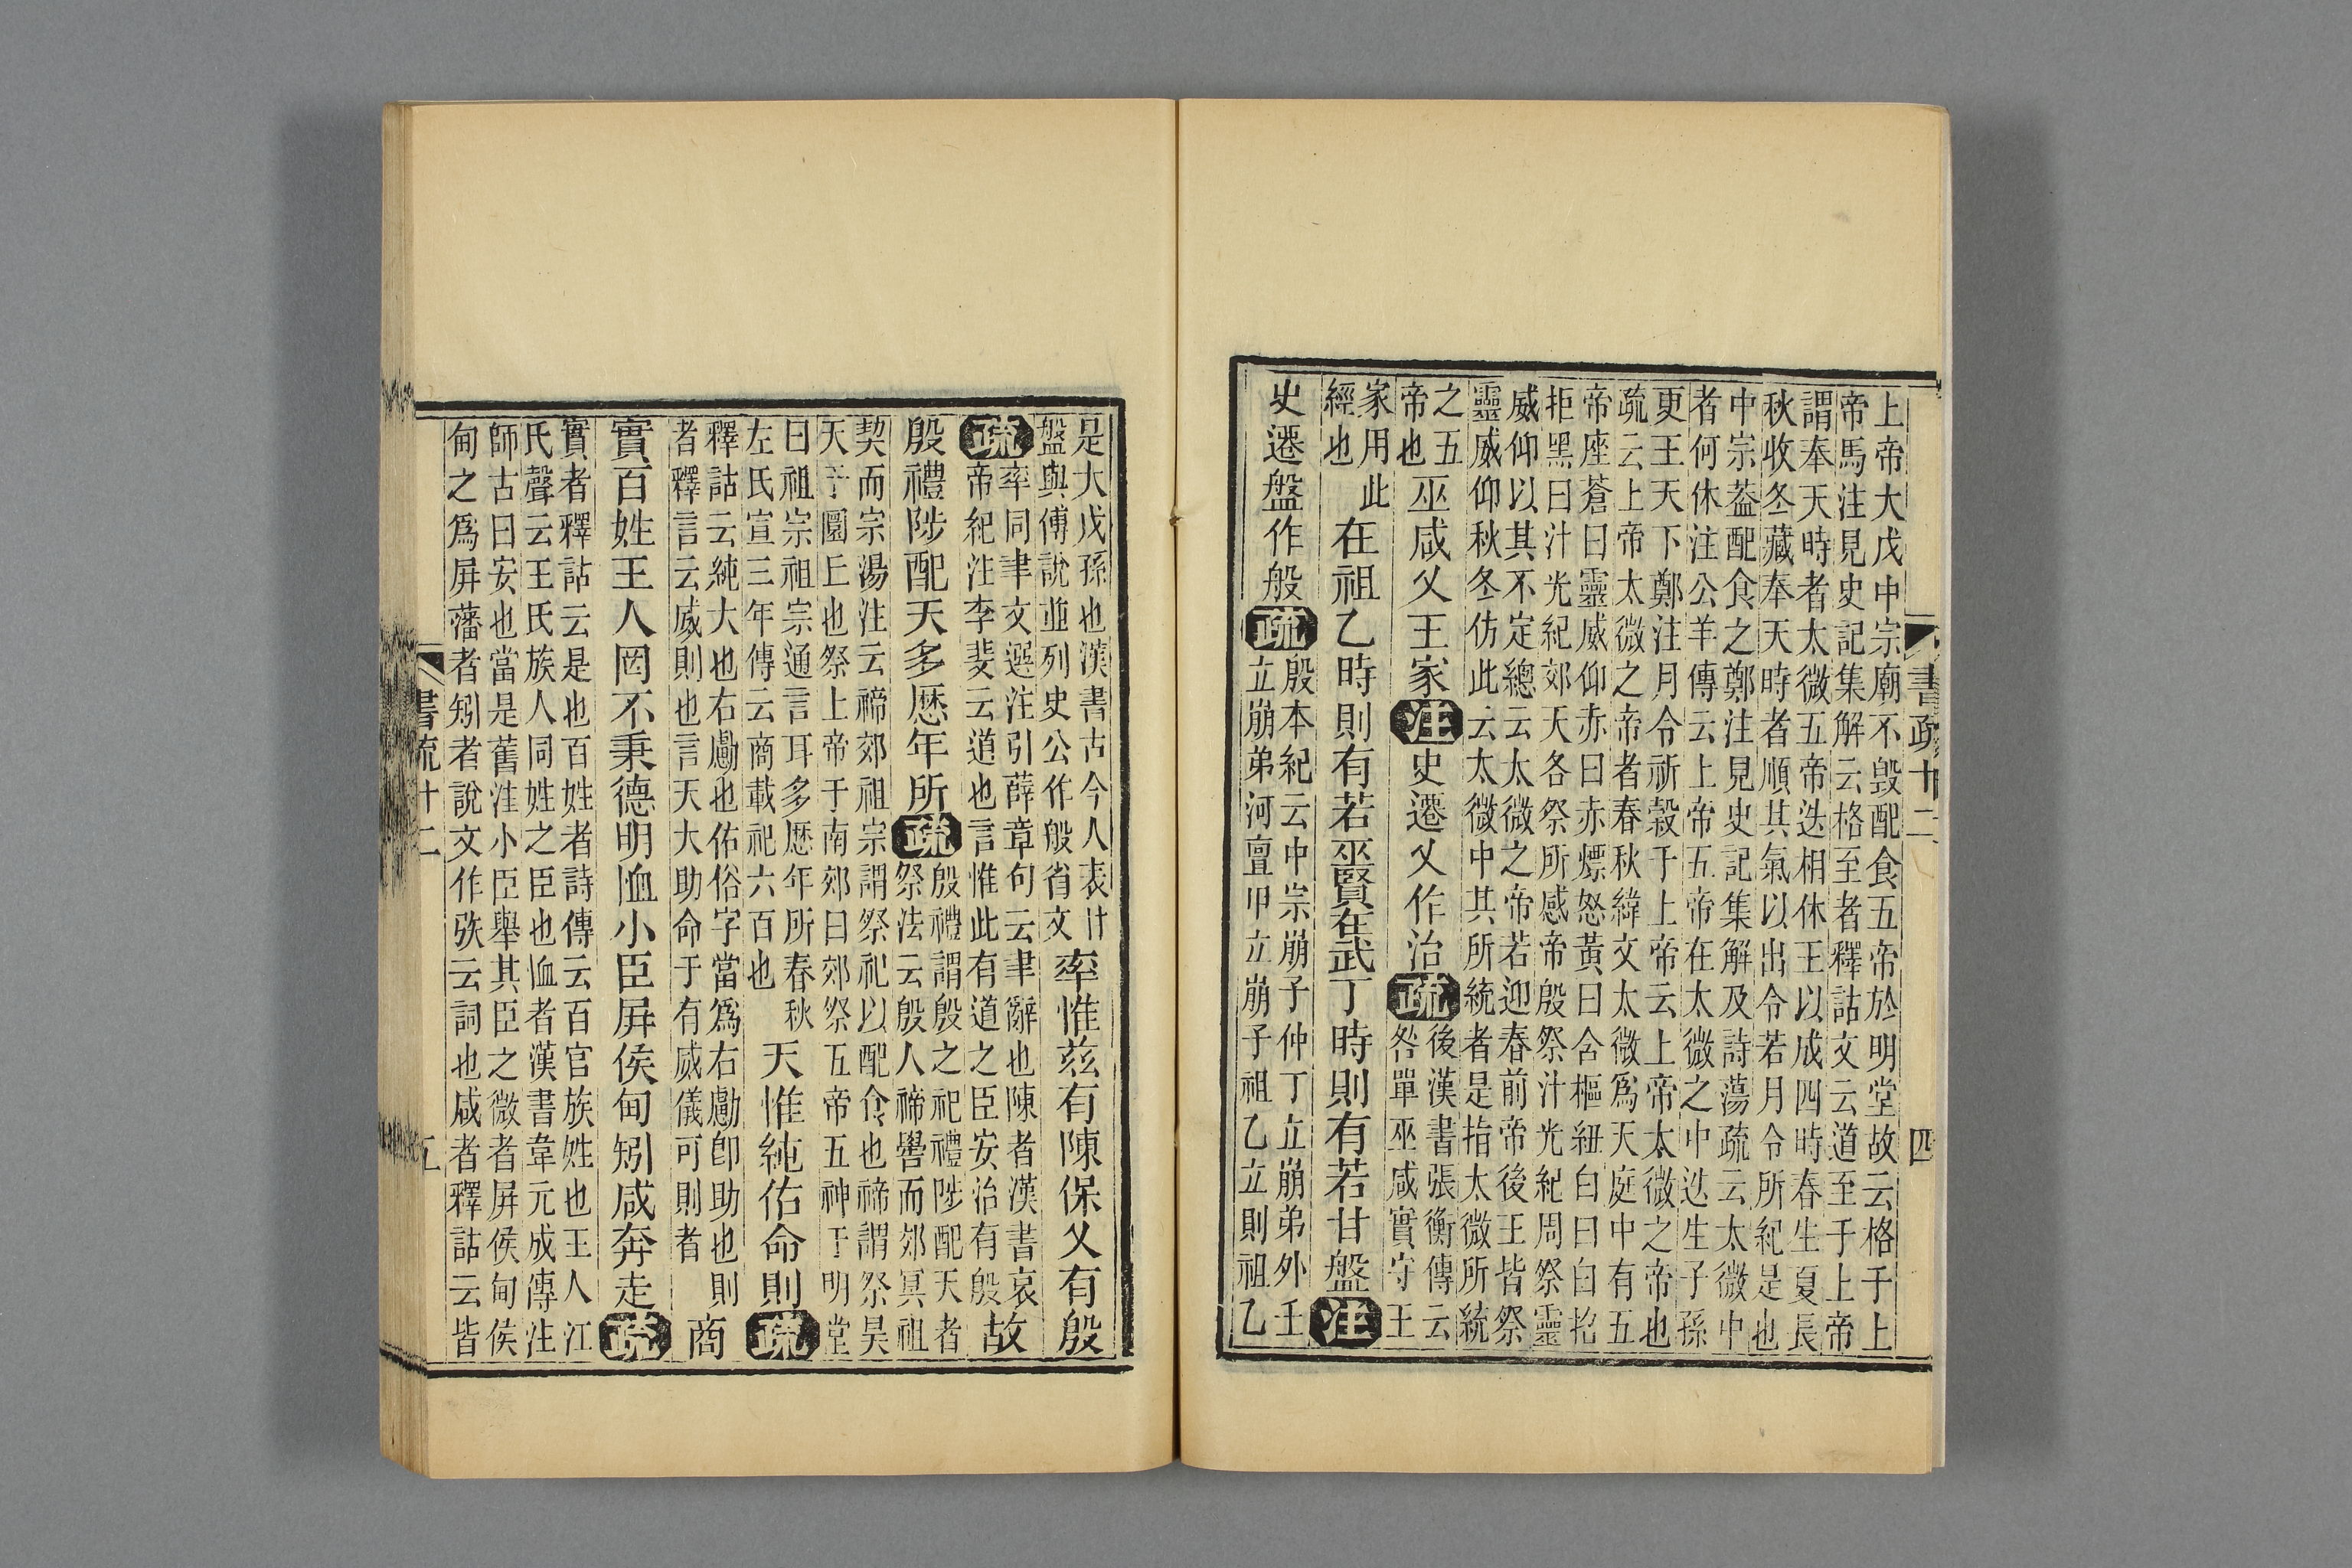 書疏十二
四
上帝大戊中宗廟不毀配食五帝於明堂故云格于上
帝馬注見史記集解云格至者釋詁文云道至于上帝
謂奉天時者太微五帝迭相休王以成四時春生夏長
秋收冬藏奉天時者順其氣以出令若月令所紀是也
中宗葢配食之鄭注見史記集解及詩蕩疏云太微中
者何休注公羊傳云上帝五帝在太微之中迭生子孫
更王天下鄭注月令祈穀于上帝云上帝太微之帝也
疏云上帝太微之帝者春秋緯文太微爲天庭中有五
帝座蒼曰靈威仰赤曰赤熛怒黃曰含樞紐白曰白招
拒黑曰汁光紀郊天各祭所感帝殷祭汁光紀周祭靈
威仰以其不定總云太微之帝若迎春前帝後王皆祭
靈威仰秋冬仿此云太微中其所統者是指太微所統
之五
帝也
巫咸乂王家
注
史遷乂作治
疏
後漢書張衡傳云
咎單巫咸實守王
家用此
經也
在祖乙時則有若巫賢在武丁時則有若甘盤
注
史遷盤作般
疏
殷本紀云中宗崩子仲丁立崩弟外壬
立崩弟河亶甲立崩子祖乙立則祖乙
是大戊孫也漢書古今人表甘
盤與傅說並列史公作般省文
率惟兹有陳保乂有殷
疏
率同聿文選注引薛章句云聿辭也陳者漢書哀
帝紀注李斐云道也言惟此有道之臣安治有殷
故
殷禮陟配天多厯年所
疏
殷禮謂殷之祀禮陟配天者
祭法云殷人禘嚳而郊冥祖
契而宗湯注云禘郊祖宗謂祭祀以配食也禘謂祭昊
天于圜丘也祭上帝于南郊曰郊祭五帝五神于明堂
曰祖宗祖宗通言耳多厯年所春秋
左氏宣三年傳云商載祀六百也
天惟純佑命則
疏
釋詁云純大也右勴也佑俗字當爲右勴卽助也則
者釋言云威則也言天大助命于有威儀可則者
商
實百姓王人罔不秉德明恤小臣屏侯甸矧咸奔走
疏
實者釋詁云是也百姓者詩傳云百官族姓也王人江
氏聲云王氏族人同姓之臣也恤者漢書韋元成傳注
師古曰安也當是舊注小臣舉其臣之微者屏侯甸侯
甸之爲屏藩者矧者說文作弞云詞也咸者釋詁云皆
書疏十二
五